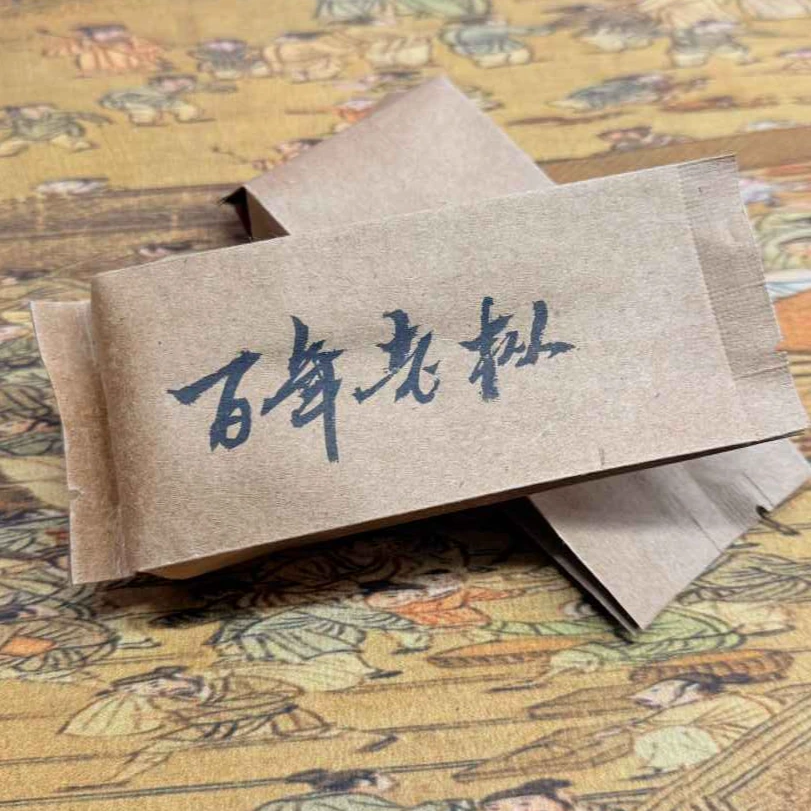 百年老枞